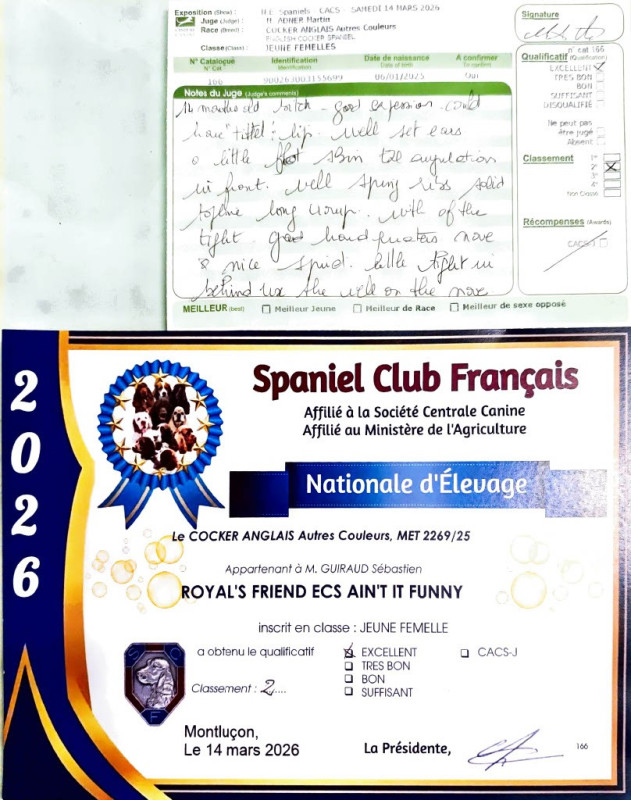 Exposition (Show) : N.E. Spaniels - CACS - SAMEDI 14 MARS 2026
Juge (Judge) : M. ADNER Martin
Race (Breed) : COCKER ANGLAIS Autres Couleurs
ENGLISH COCKER SPANIEL
Classe (Class) : JEUNE FEMELLES
N° Catalogue Identification Date de naissance A confirmer
N° Cat. Identification Date of birth To confirm
166 900263003155699 06/01/2025 Oui
Notes du Juge (Judge's comments)
14 months old bitch - good expression. could
have lip. well set ears
a little angulation
in front. well sprung ribs solid
topline long of the
tight. good hindquarters move
nice little tight in
behind on the move
MEILLEUR (best) Meilleur Jeune Meilleur de Race Meilleur de sexe opposé
Signature
Qualificatif (Qualification)
n° cat 166
EXCELLENT
TRES BON
BON
SUFFISANT
DISQUALIFIÉ
Ne peut pas
être jugé
Absent
Classement
1°
2°
3°
4°
Non Classé
Récompenses (Awards)
CACS-J
2026
Spaniel Club Français
Affilié à la Société Centrale Canine
Affilié au Ministère de l'Agriculture
Nationale d'Élevage
Le COCKER ANGLAIS Autres Couleurs, MET 2269/25
Appartenant à M. GUIRAUD Sébastien
ROYAL'S FRIEND ECS AIN'T IT FUNNY
inscrit en classe : JEUNE FEMELLE
a obtenu le qualificatif EXCELLENT CACS-J
TRES BON
BON
SUFFISANT
Classement : 2....
S C F
Montluçon,
Le 14 mars 2026
La Présidente,
166